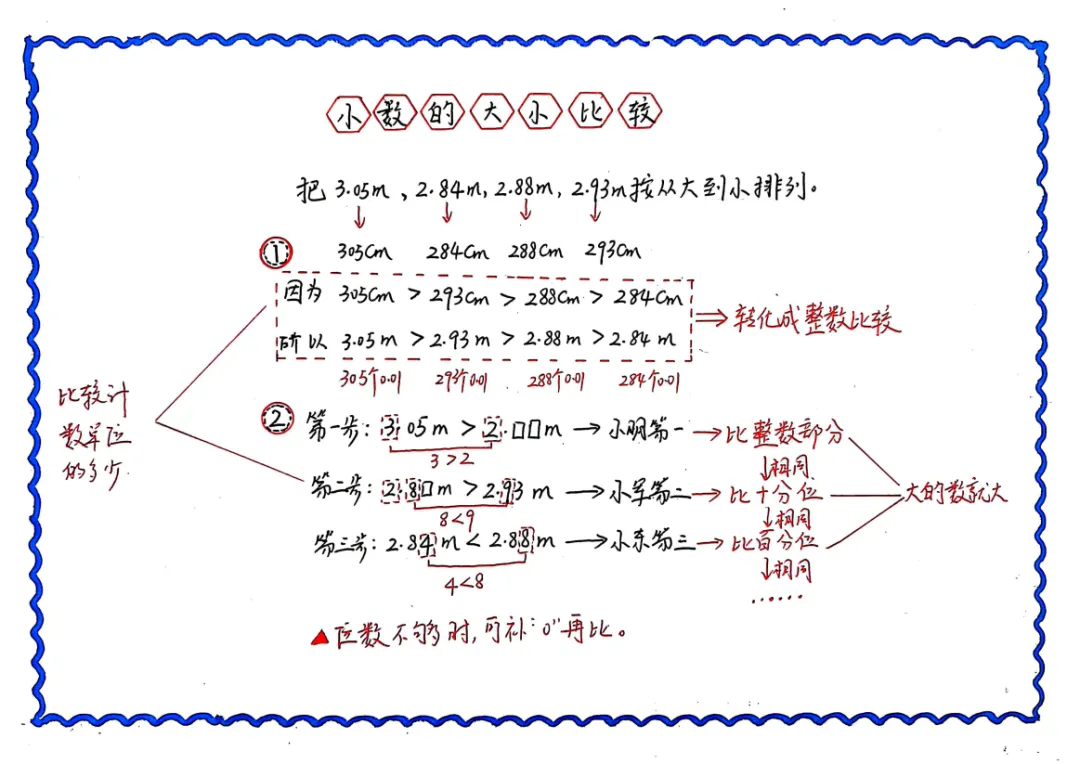 小数的大小比较
把 3.05m、2.84m, 2.88m, 2.93m按从大到小排列。
↓ ↓ ↓ ↓
① 305cm 284cm 288cm 293cm
因为 305cm > 293cm > 288cm > 284cm
所以 3.05m > 2.93m > 2.88m > 2.84m
⇒ 转化成整数比较
305个0.01 293个0.01 288个0.01 284个0.01
比较计
数单位
的多少
② 第一步: 3.05m > 2.□□m → 小明第一 → 比整数部分
3>2
↓相同
第二步: 2.8□m > 2.93m → 小军第二 → 比十分位
8<9
↓相同
第三步: 2.84m < 2.88m → 小东第三 → 比百分位
4<8
↓相同
······
大的数就大
▲位数不够时,可补"0"再比。